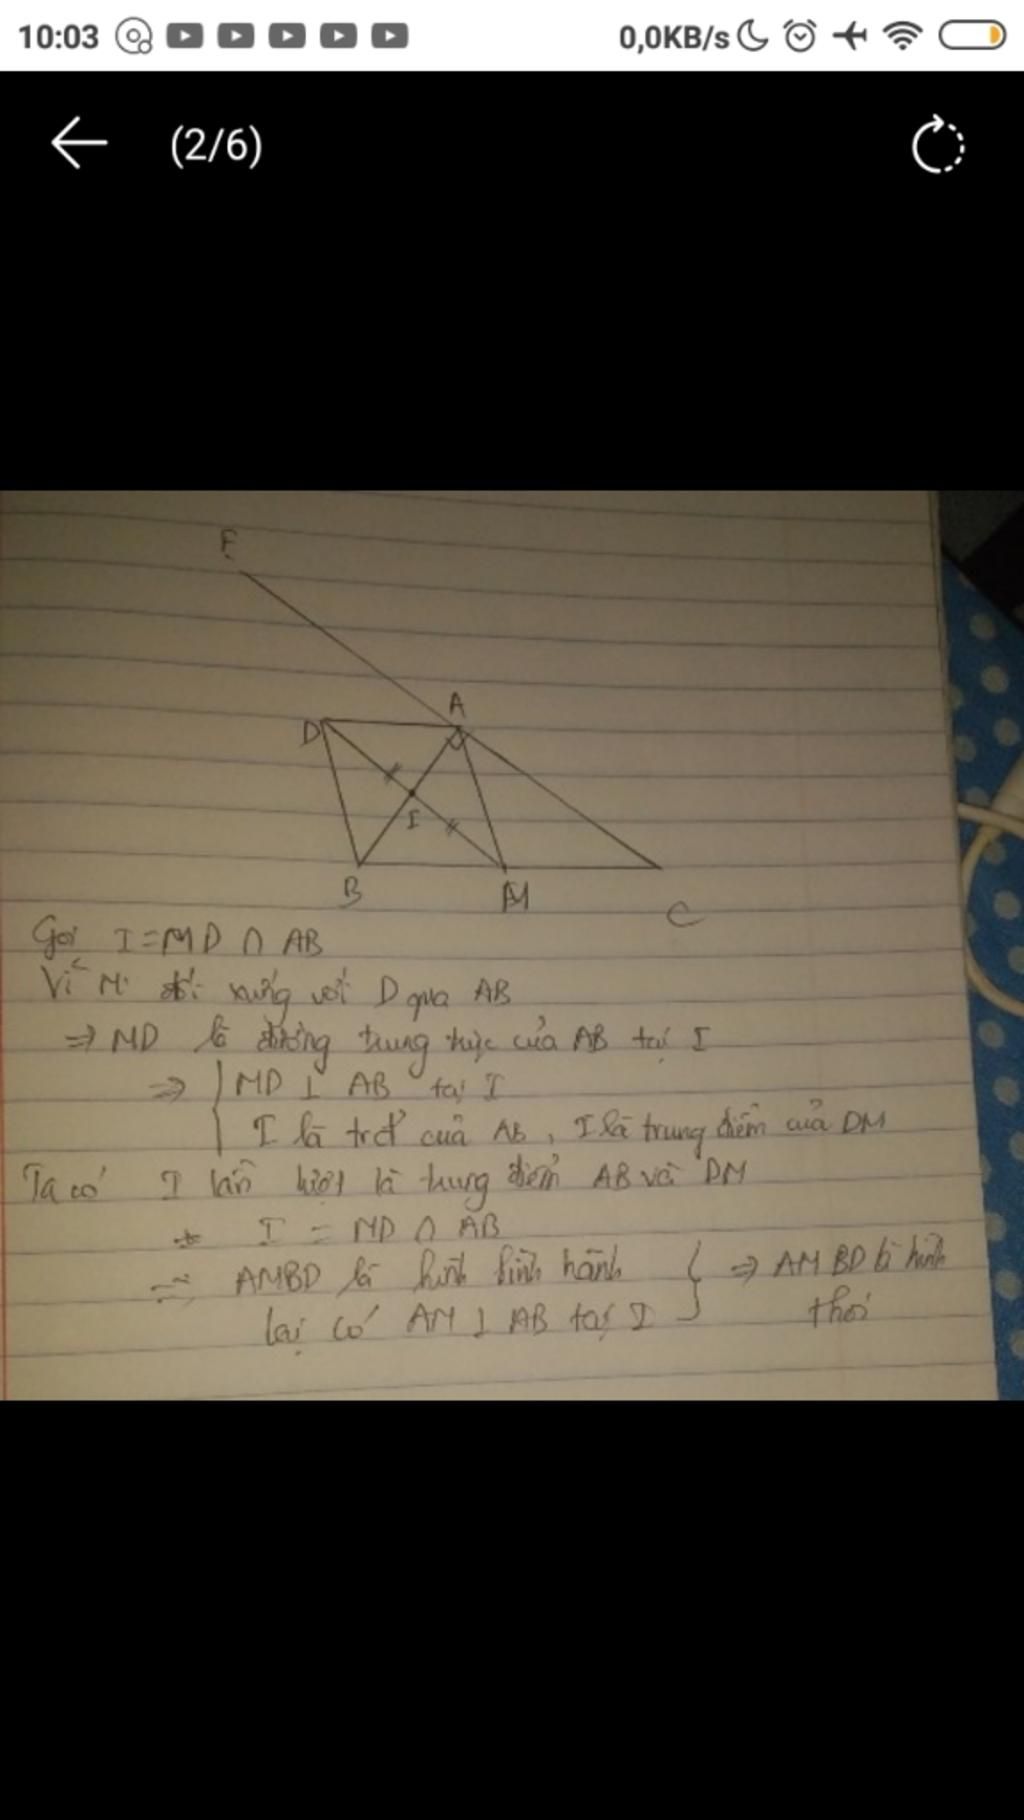 10:03 0,0KB/s
(2/6)
E
A
D
I
B M C
Gọi I = MD ∩ AB
Vì M đối xứng với D qua AB
⇒ MD là đường trung trực của AB tại I
⇒ { MD ⊥ AB tại I
I là trđ của AB, I là trung điểm của DM
Ta có I lần lượt là trung điểm AB và DM
I = MD ∩ AB
⇒ AMBD là hình bình hành } ⇒ AMBD là hình
lại có AM ⊥ AB tại I thoi